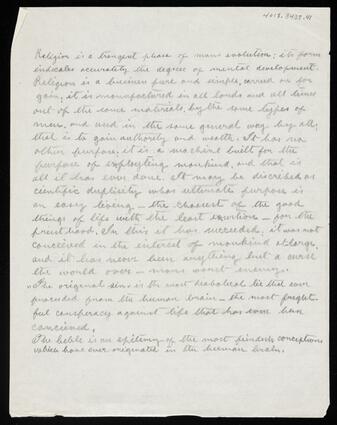 4012.3435.41
Religion is a transient phase of mans evolution; its form
indicates accurately the degree of mental development.
Religion is a business pure and simple, carried on for
gain, it is manufactured in all lands and all times
out of the same materials, by the same types of
men, and used in the same general way by all,
that is to gain authority and wealth. It has no
other purpose, it is a machine built for the
purpose of exploiting mankind, and that is
all it has ever done. It may be discribed as
cientific duplicity whos ulterioate purpose is
an easy living - the choisest of the good
things of life with the least exertions - for the
priesthood. In this it has succeeded, it was not
conceived in the interest of mankind at large,
and it has never been anything but a curse
the world over - mans worst enemy.
The original sin, is the most diabolical lie that ever
proceeded from the human brain - the most fright-
ful conspiracy against life that has ever been
conceived.
The bible is an epitomy of the most fiendish conceptions
have ever originated in the human brain.